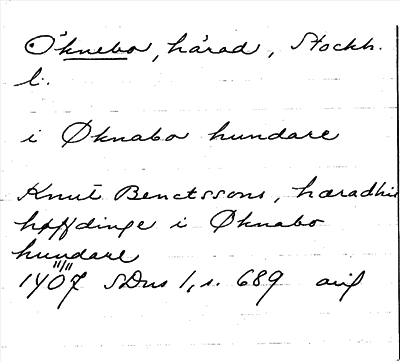 Öknebo, härad, Stockh.
l.
i Øknabo hundare
Knut Benctssons, hæradhis
høffdinge i Øknabo
hundare
11/11
1407 SDns 1, s. 689 avs